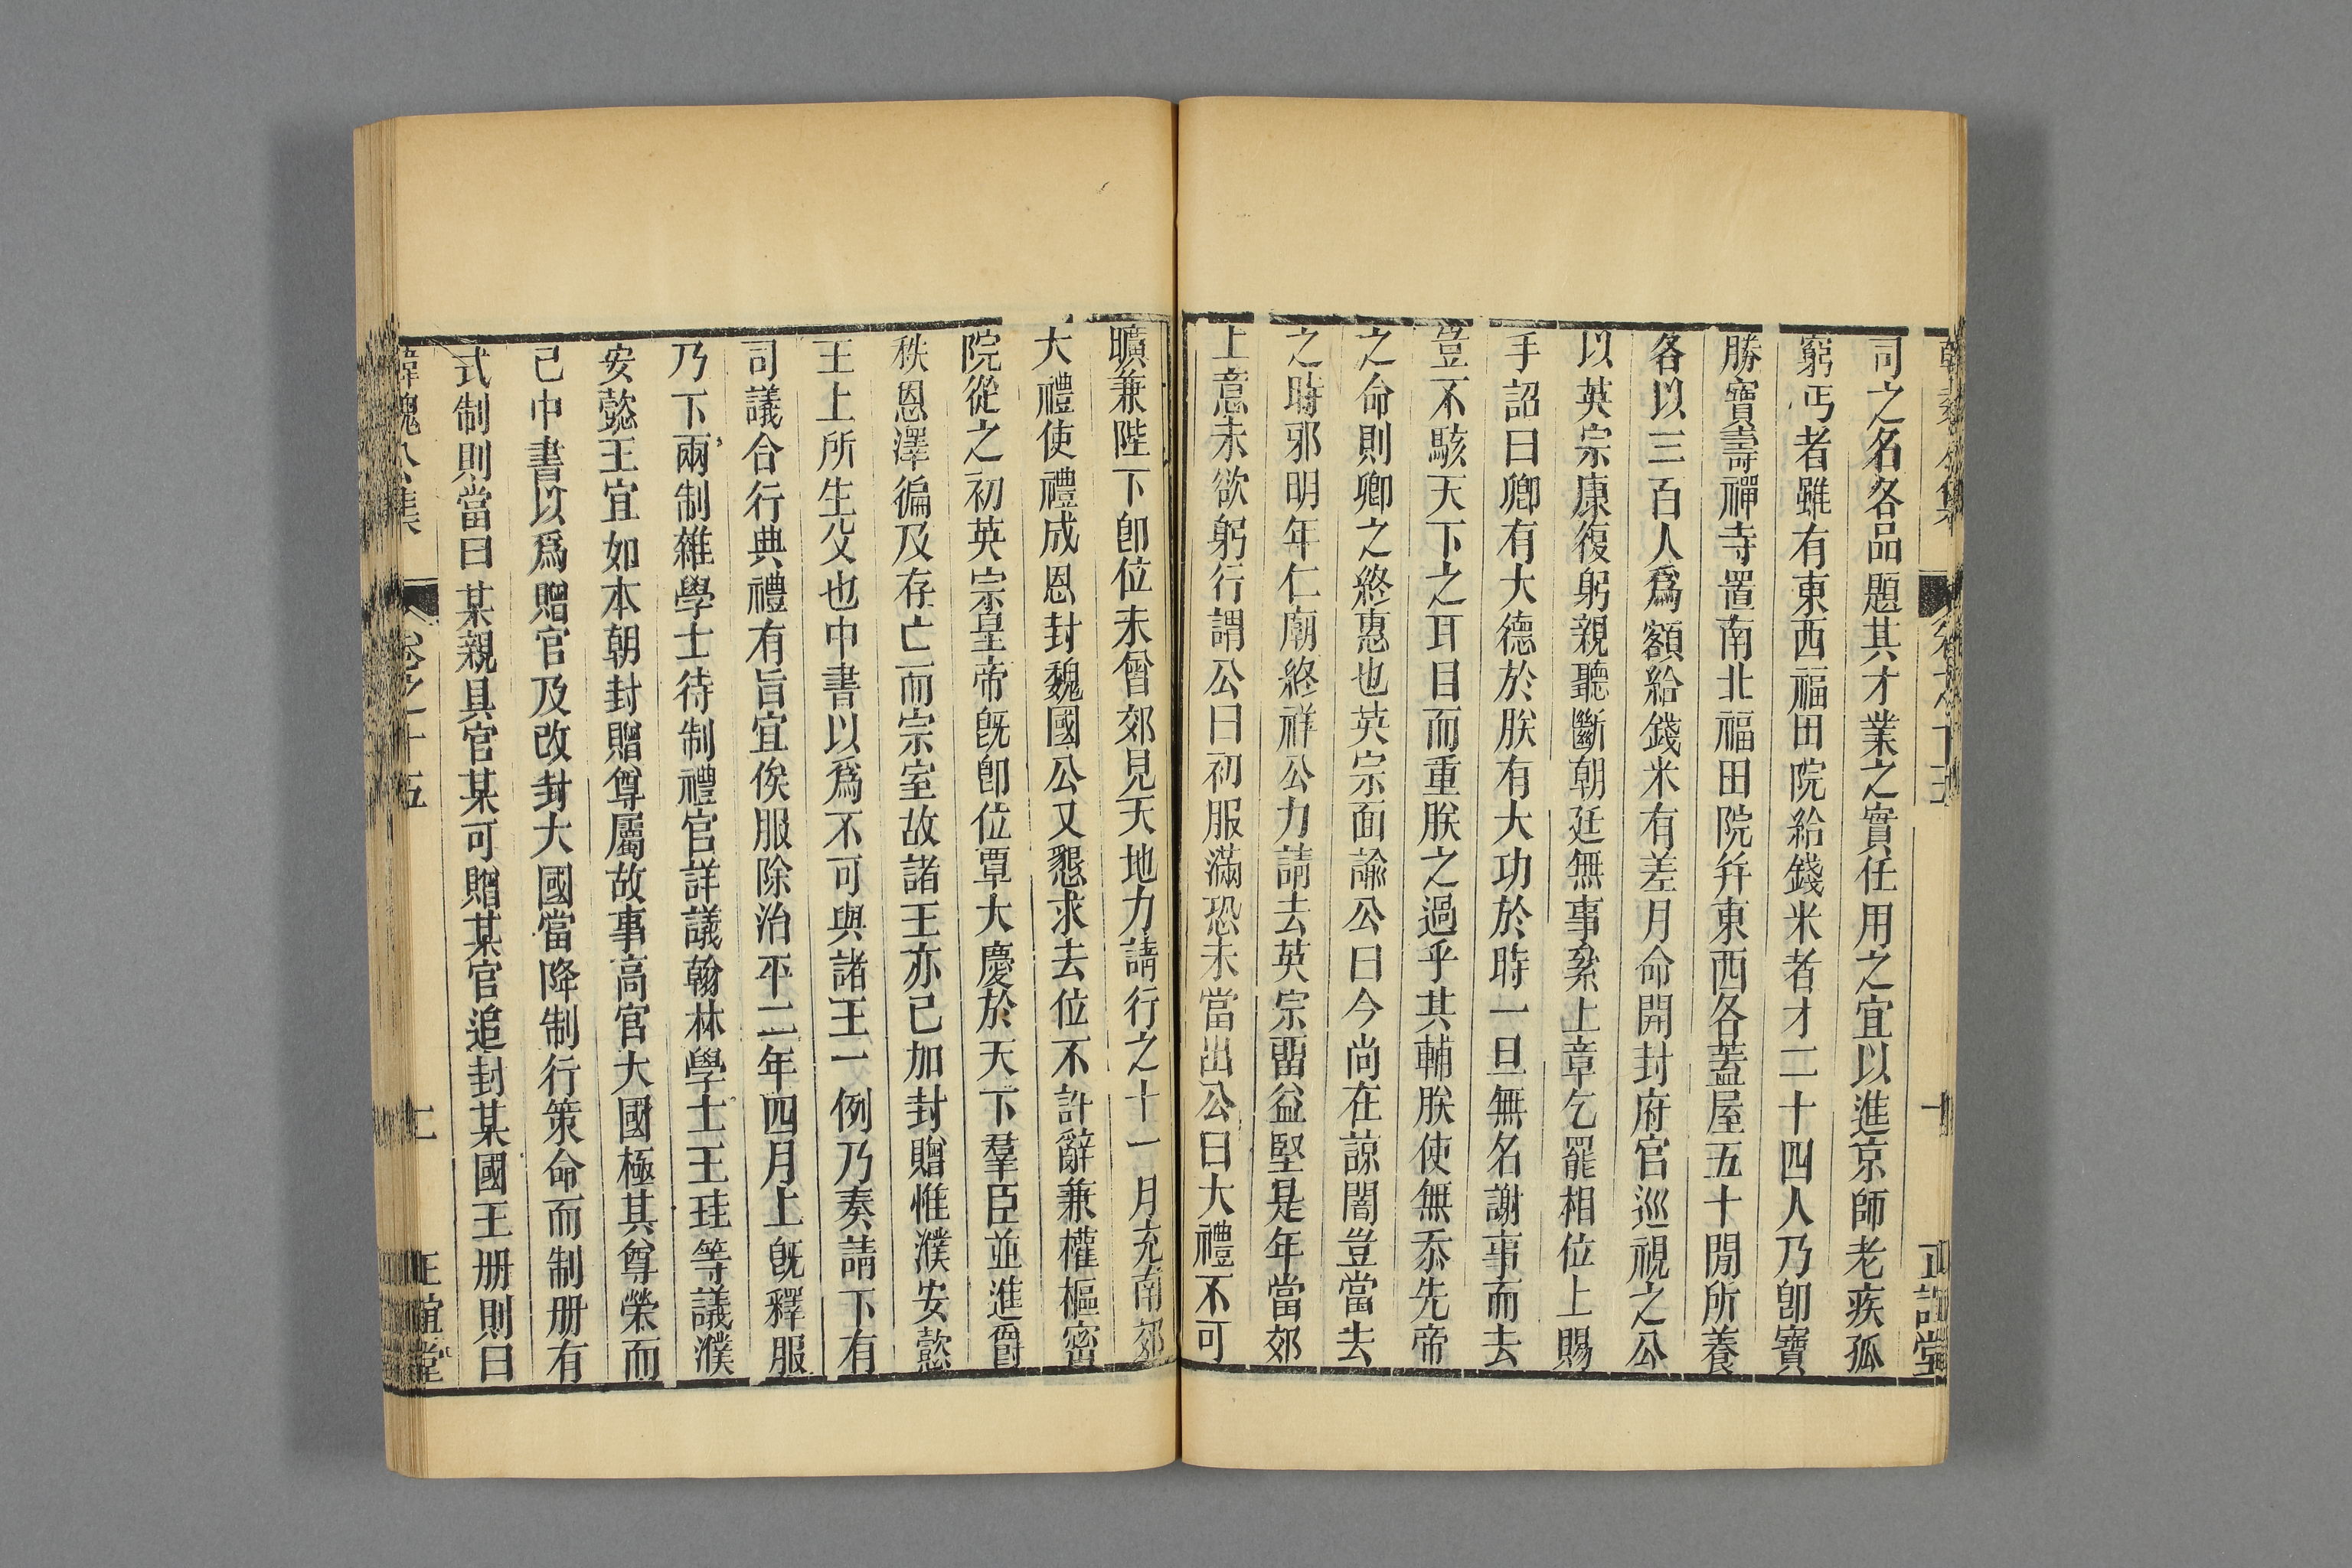 司之名各品題其才業之實任用之宜以進京師老疾孤
窮丐者雖有東西福田院給錢米者才二十四人乃卽寶
勝寶壽禪寺置南北福田院幷東西各蓋屋五十閒所養
各以三百人爲額給錢米有差月命開封府官巡視之公
以英宗康復躬親聽斷朝廷無事絫上章乞罷相位上賜
手詔曰卿有大德於朕有大功於時一旦無名謝事而去
豈不駭天下之耳目而重朕之過乎其輔朕使無忝先帝
之命則卿之終惠也英宗面諭公曰今尚在諒闇豈當去
之時邪明年仁廟終祥公力請去英宗畱益堅是年當郊
上意未欲躬行謂公曰初服滿恐未當出公曰大禮不可
曠兼陛下卽位未曾郊見天地力請行之十一月充南郊
大禮使禮成恩封魏國公又懇求去位不許辭兼權樞密
院從之初英宗皇帝旣卽位覃大慶於天下羣臣並進爵
秩恩澤徧及存亡而宗室故諸王亦已加封贈惟濮安懿
王上所生父也中書以爲不可與諸王一例乃奏請下有
司議合行典禮有旨宜俟服除治平二年四月上旣釋服
乃下兩制雜學士待制禮官詳議翰林學士王珪等議濮
安懿王宜如本朝封贈尊屬故事高官大國極其尊榮而
已中書以爲贈官及改封大國當降制行策命而制册有
式制則當曰某親具官某可贈某官追封某國王册則曰
韓魏公集 卷之十五 十一 正誼堂